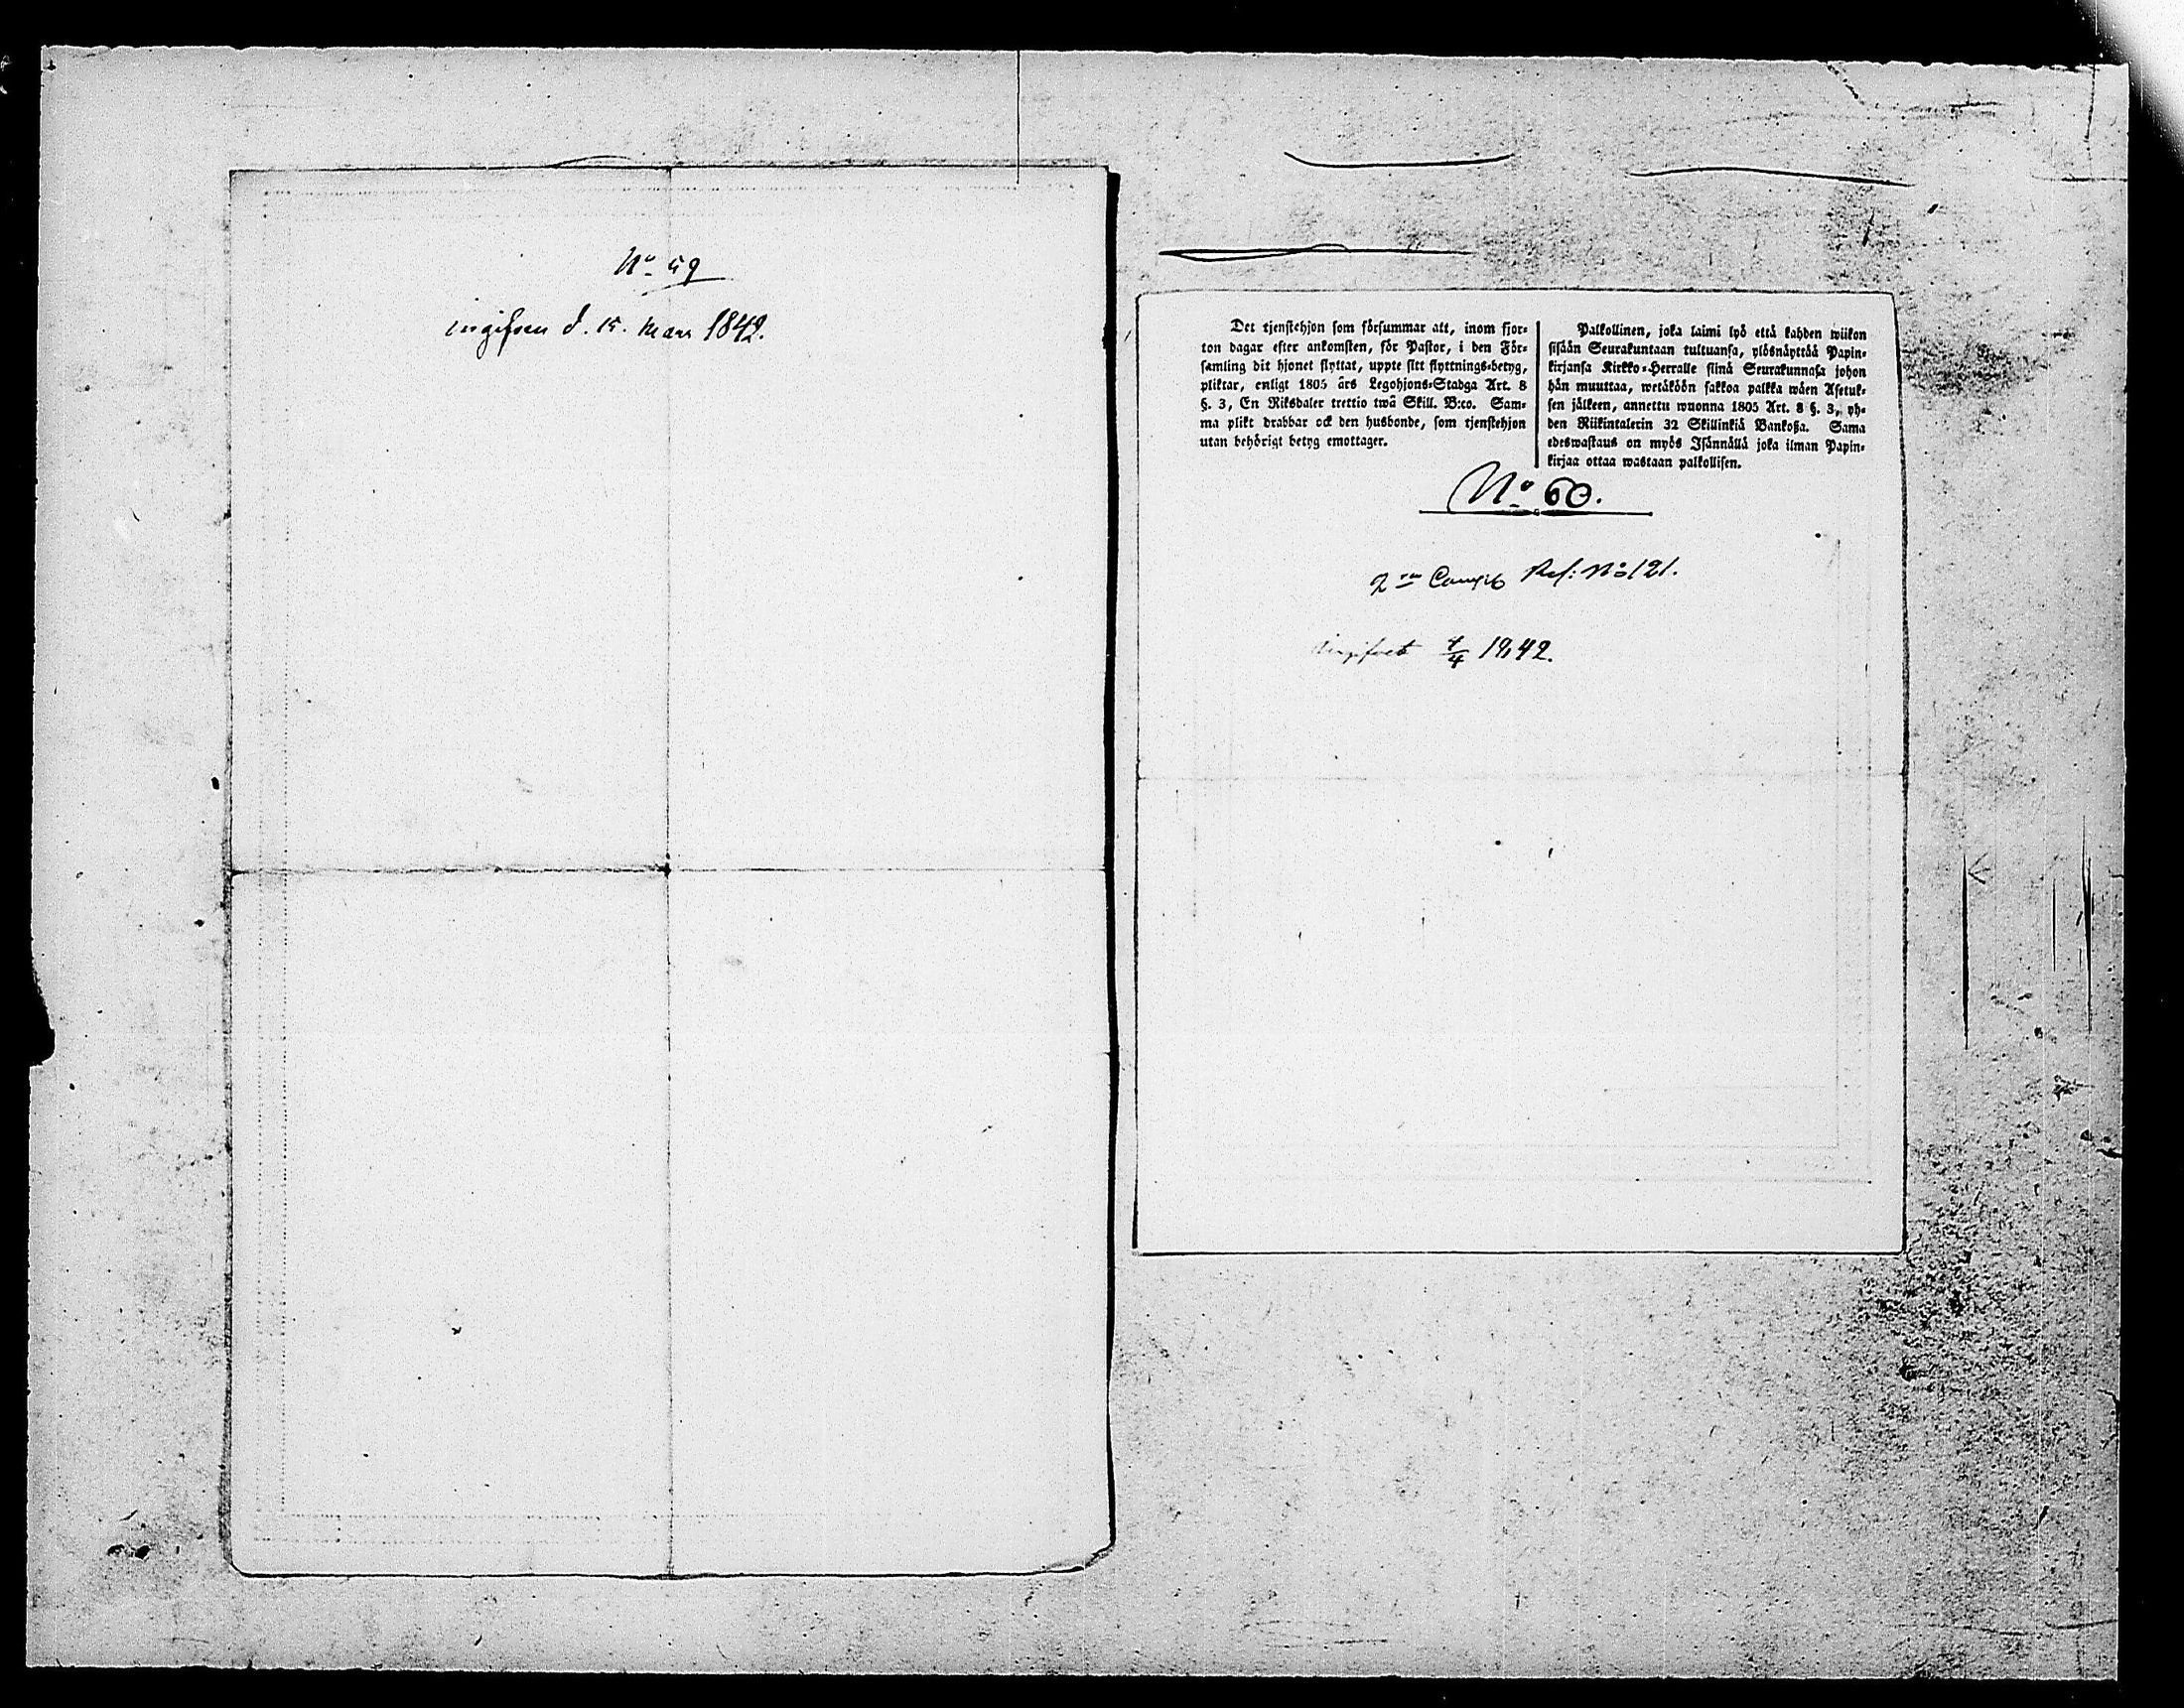 No 59
ingifven d. 15. Mars 1842.
Det tjenstehjon som försummar att, inom fjor-
ton dagar efter ankomsten, för Pastor, i den För-
samling dit hjonet flyttat, uppte sitt flyttnings-betyg,
pliktar, enligt 1805 års Legohjons-Stadga Art. 8
§. 3, En Riksdaler trettio twå Skill. B:co. Sam-
ma plikt drabbar ock den husbonde, som tjenstehjon
utan behörigt betyg emottager.
Palkollinen, joka laimi lyö että kahden wiikon
sisään Seurakuntaan tultuansa, ylösnäyttää Papin-
kirjansa Kirkko-Herralle siinä Seurakunnasa johon
hän muuttaa, wetäköön sakkoa palkka wäen Asetuk-
sen jälkeen, annettu wuonna 1805 Art. 8 §. 3, yh-
den Riikintalerin 32 Skillinkiä Bankoßa. Sama
edeswastaus on myös Isännällä joka ilman Papin-
kirjaa ottaa wastaan palkollisen.
No 60.
2 Ref: No 121.
1842.